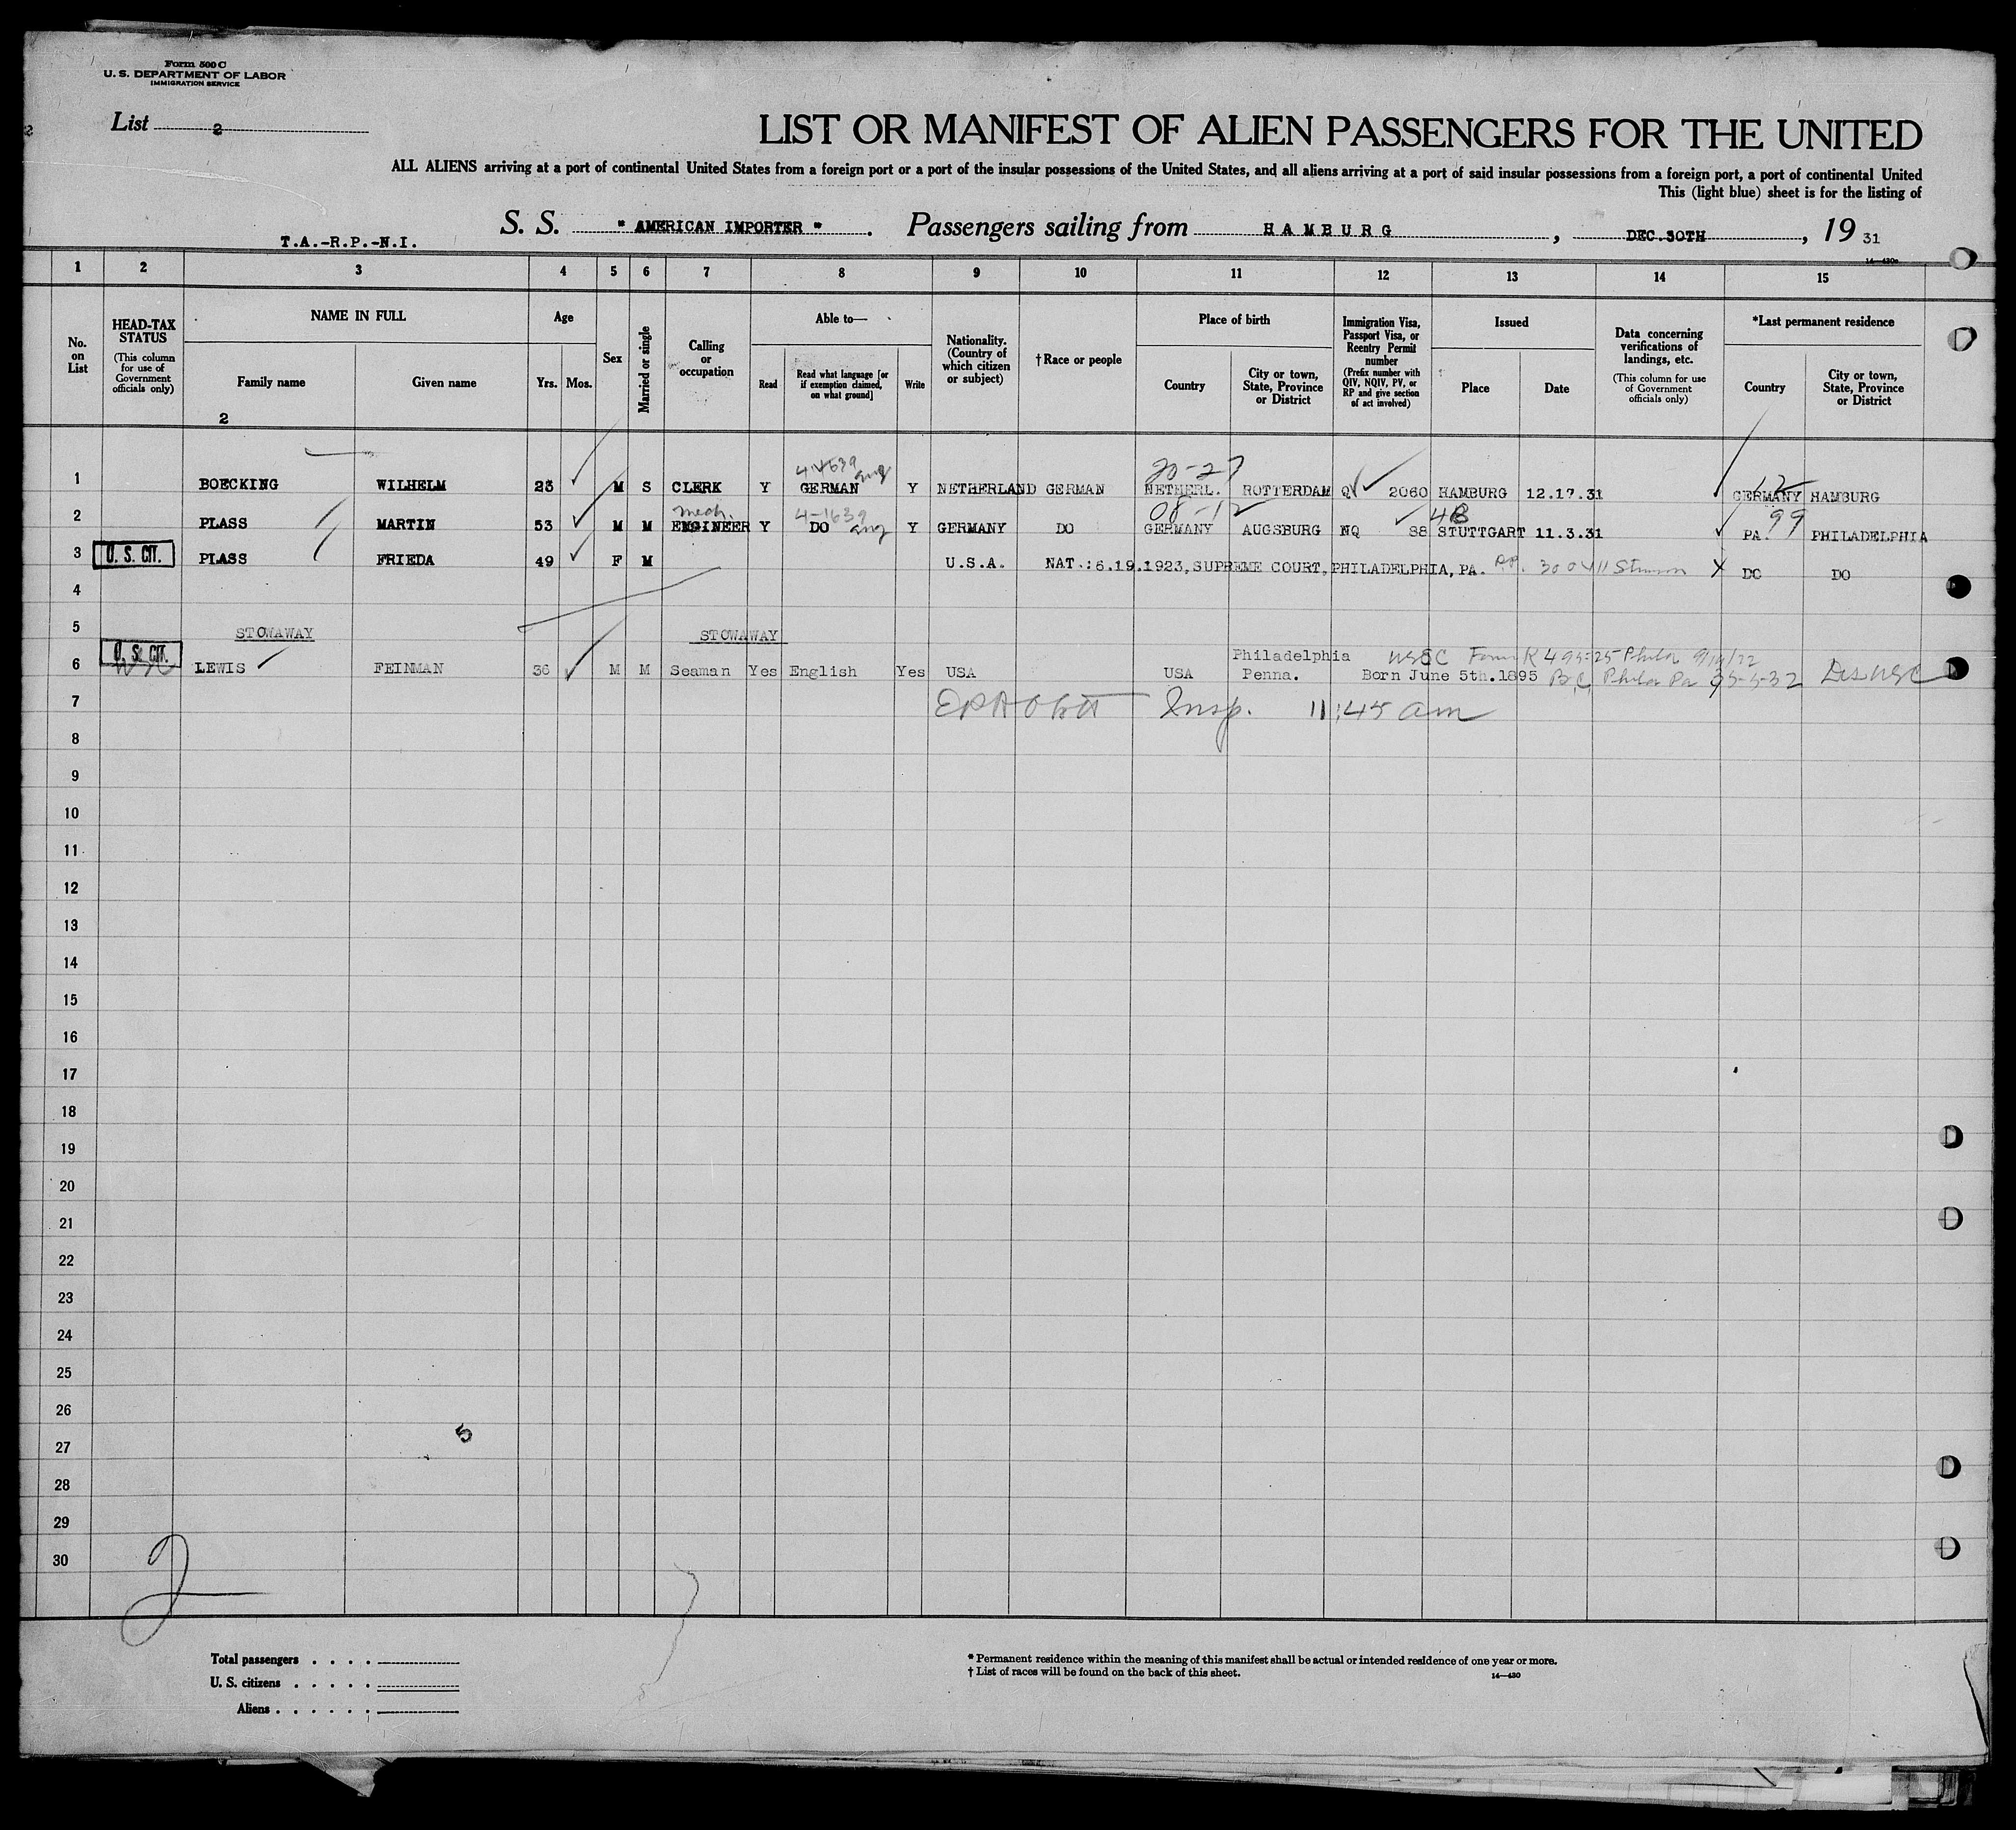 Form 500 C
U. S. DEPARTMENT OF LABOR
IMMIGRATION SERVICE
List 2
2
LIST OR MANIFEST OF ALIEN PASSENGERS FOR THE UNITED
ALL ALIENS arriving at a port of continental United States from a foreign port or a port of the insular possessions of the United States, and all aliens arriving at a port of said insular possessions from a foreign port, a port of continental United
This (light blue) sheet is for the listing of
T.A.-R.P.-N.I.
S. S. " AMERICAN IMPORTER " . Passengers sailing from HAMBURG , DEC.30TH , 19 31
14-430a
1 2 3 4 5 6 7 8 9 10 11 12 13 14 15
No. on List
HEAD-TAX STATUS
(This column for use of Government officials only)
NAME IN FULL
Family name
Given name
2
Age
Yrs. Mos.
Sex
Married or single
Calling or occupation
Able to—
Read
Read what language [or if exemption claimed, on what ground]
Write
Nationality. (Country of which citizen or subject)
†Race or people
Place of birth
Country
City or town, State, Province or District
Immigration Visa, Passport Visa, or Reentry Permit number
(Prefix number with QIV, NQIV, PV, or RP and give section of act involved)
Issued
Place
Date
Data concerning verifications of landings, etc.
(This column for use of Government officials only)
*Last permanent residence
Country
City or town, State, Province or District
41639 20-27 12
1 BOECKING WILHELM 23 M S CLERK Y GERMAN Eng Y NETHERLAND GERMAN NETHERL. ROTTERDAM QV 2060 HAMBURG 12.17.31 GERMANY HAMBURG
mech. 4-1639 08-12 4B 99
2 PLASS MARTIN 53 M M ENGINEER Y DO Eng Y GERMANY DO GERMANY AUGSBURG NQ 88 STUTTGART 11.3.31 PA. PHILADELPHIA
3 U. S. CIT. PLASS FRIEDA 49 F M U.S.A. NAT.:6.19.1923,SUPREME COURT,PHILADELPHIA,PA. PP. 300411 Stimson DO DO
4
5 STOWAWAY STOWAWAY
U. S. CIT. Philadelphia USC Form K 495-25 Phila
6 USC LEWIS FEINMAN 36 M M Seaman Yes English Yes USA USA Penna. Born June 5th.1895 B.C. Phila Pa USC
7 Insp. 11:45 am
8
9
10
11
12
13
14
15
16
17
18
19
20
21
22
23
24
25
26
27
5
28
29
30
2
Total passengers . . . .
U. S. citizens . . . . .
Aliens . . . . . .
* Permanent residence within the meaning of this manifest shall be actual or intended residence of one year or more.
† List of races will be found on the back of this sheet.
14-430